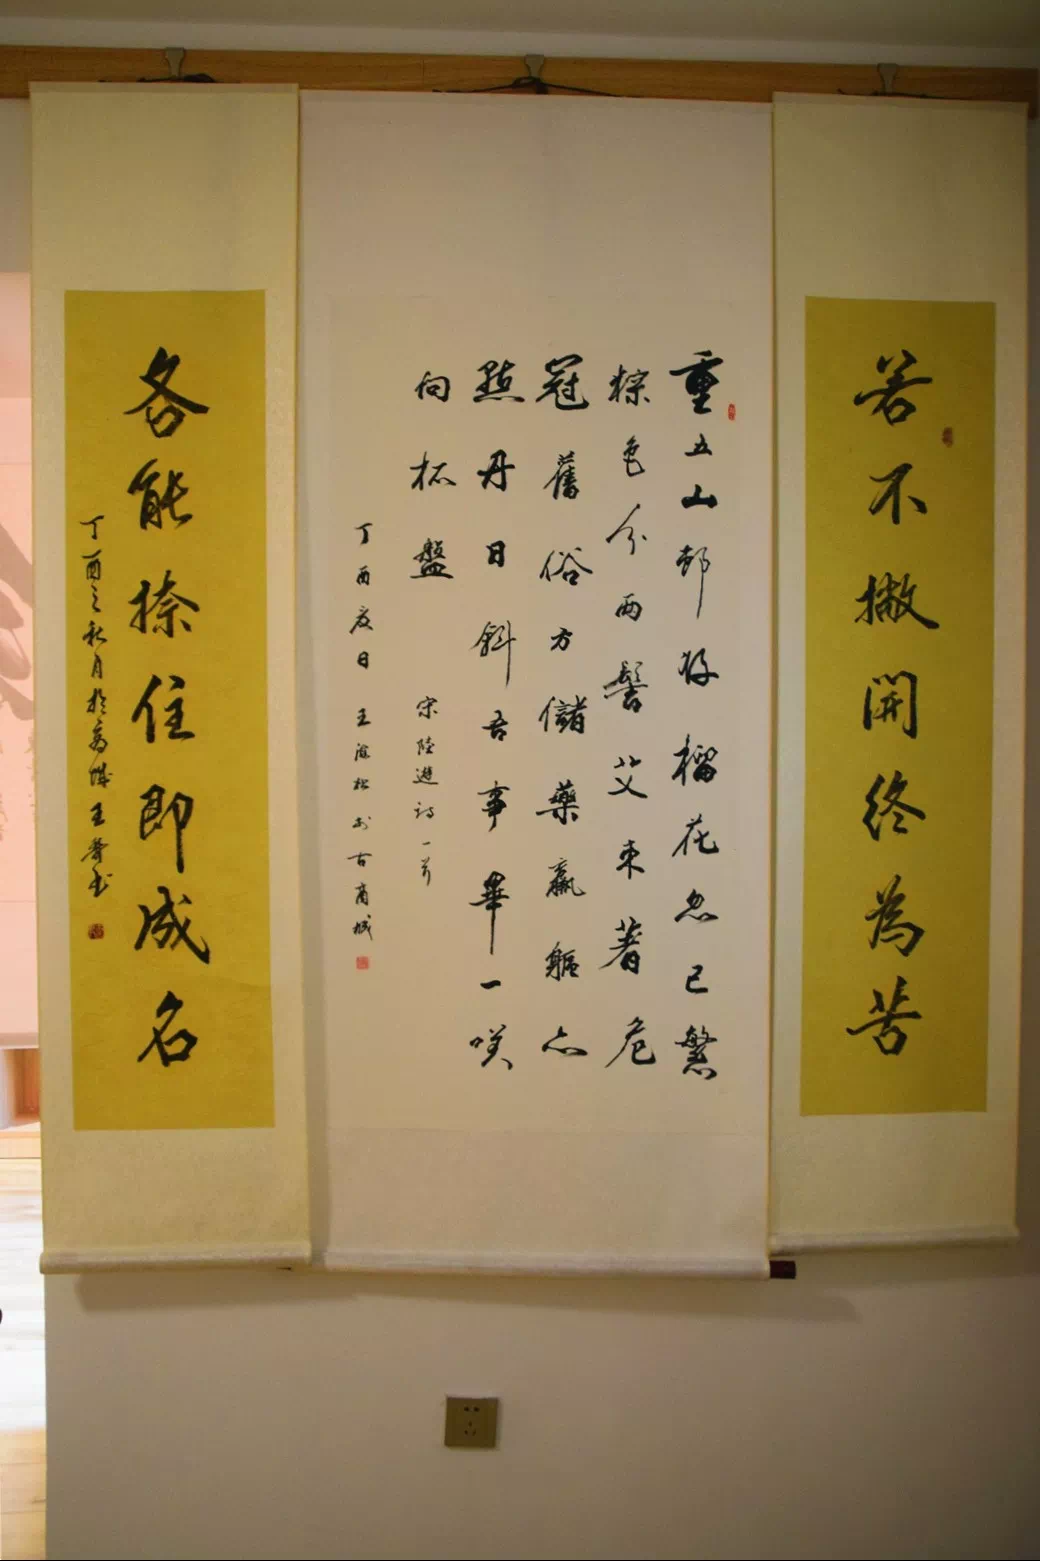 若不撇開終為苦
重五山邨好榴花忽已繁
粽包分兩髻艾束著危
冠舊俗方儲藥羸軀亦
點丹日斜吾事畢一咲
向杯盤 宋陸遊詩一首
丁酉夏日 王松於古商城
各能捺住即成名
丁酉之秋月於商城王書